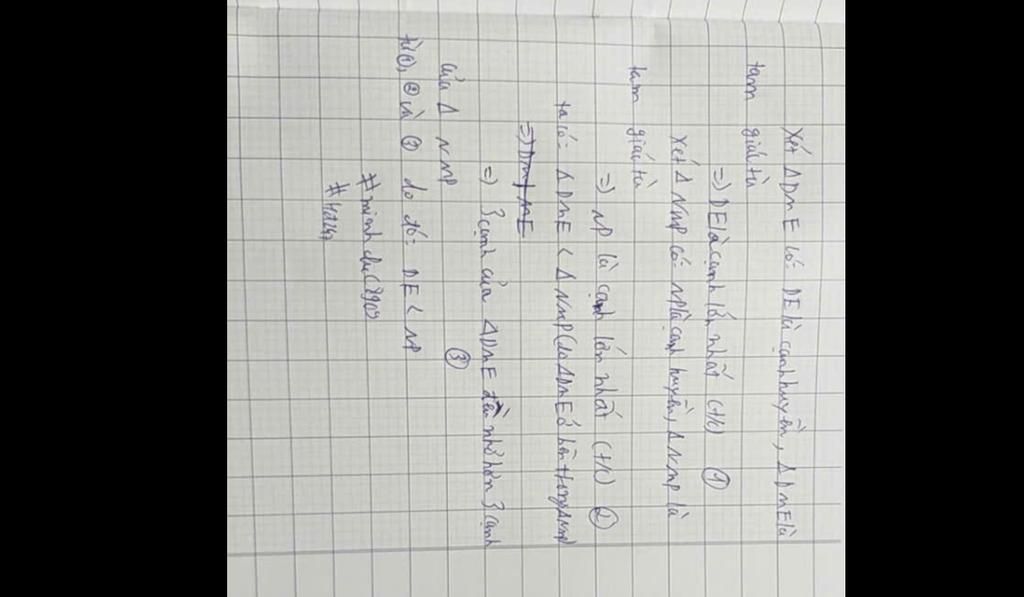 Xét ΔDME có: DE là cạnh huyền, ΔDME là
tam giác tù
=) DE là cạnh lớn nhất (t/c) ①
Xét Δ NMP có: NP là cạnh huyền, Δ NMP là
tam giác tù
=) NP là cạnh lớn nhất (t/c) ②
ta có: ΔDME < Δ NMP (do ΔDME ở bên trong ΔNMP)
=) 3 cạnh của ΔDME đều nhỏ hơn 3 cạnh
của Δ NMP ③
từ ①, ② và ③ do đó: DE < NP